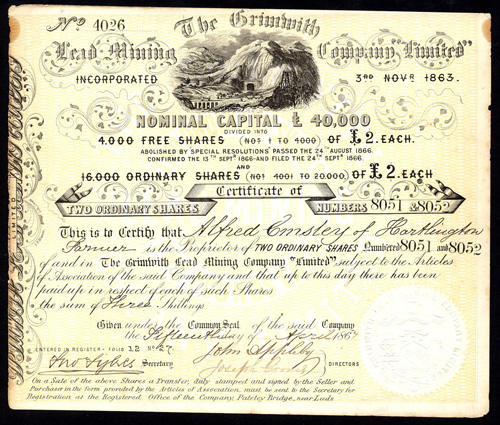 No 4026
The Grimwith
Lead Mining Company "Limited"
INCORPORATED 3RD NOVR 1863.
NOMINAL CAPITAL £ 40,000
DIVIDED INTO
4.000 FREE SHARES (Nos 1 TO 4000) OF £2. EACH.
ABOLISHED BY SPECIAL RESOLUTIONS PASSED THE 24TH AUGUST 1866.
CONFIRMED THE 13TH SEPT 1866 AND FILED THE 24TH SEPT 1866.
AND
16.000 ORDINARY SHARES (No 4001 TO 20.000) OF £2. EACH
Certificate of
TWO ORDINARY SHARES NUMBERS 8051 & 8052
This is to Certify that Alfred Emsley of Hartlington
Farmer is the Proprietor of TWO ORDINARY SHARES Numbered 8051 and 8052
of and in The Grimwith Lead Mining Company "Limited" subject to the Articles
of Association of the said Company and that up to this day there has been
paid up in respect of each of such Shares
the sum of Three Shillings
Given under the Common Seal of the said Company
the Fifteenth day of April 186
ENTERED IN REGISTER - FOLIO 32 No 27.
John Appleby
Jno Sykes Secretary
Joseph DIRECTORS
On a Sale of the above Shares a Transfer, duly stamped and signed by the Seller and
Purchaser in the form provided by the Articles of Association, must be sent to the Secretary for
Registration at the Registered Office of the Company, Pateley Bridge, near Leeds
LIMITED